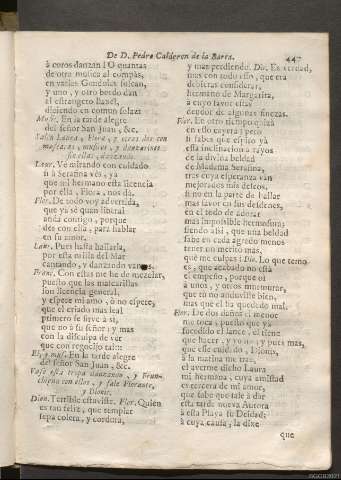 De D. Pedro Calderon de la Barca.
447
à coros danzan! O quantas
de otra musica al compàs,
en varias Gondolas surcan,
y uno, y otro bordo dan
al estrangero Baxel,
diciendo en comun solaz:
Music. En la tarde alegre
del señor San Juan, &c.
Salen Laura, Flora, y otras dos con
mascaras, musicos, y danzarines
danzando.
Laur. Vè mirando con cuidado
si à Serafina vès, ya
que mi hermano esta licencia
por ella, Flora, nos dà.
Flor. De todo voy advertida,
que ya sè quan liberal
anda contigo, porque
dès con ella, para hablar
en su amor.
Laur. Pues hasta hallarla,
por esta orilla del Mar
cantando, y danzando vamos.
Franc. Con estas me he de mezclar,
puesto que las mascarillas
son licencia general,
y espere mi amo, ò no espere,
que el criado mas leal
primero se sirve à sì,
que no à su señor; y mas
con la disculpa de ver
que con regocijo tal::
El, y mus. En la tarde alegre
del señor San Juan, &c.
Vase esta tropa danzando, y
con ellos, y sale Florante,
y Dionis.
Dion. Terrible estaviste. Flor. Quièn
es tan feliz, que templar
sepa colera, y cordura,
y mas perdiendo. Dio. Es verdad,
mas con todo esso, que era
debieras considerar,
hermano de Margarita,
à cuyo favor estàs
deudor de algunas finezas.
Flor. En otro tiempo quizà
en esso cayera; pero
si sabes que espiró ya
esta inclinacion à rayos
de la divina beldad
de Madama Serafina,
tras cuya esperanza van
mejorados mis deseos,
si no en la parte de hallar
mas favor en sus desdenes,
en el todo de adorar
mas impossible hermosura;
siendo assi, que una beldad
sabe en cada agrado menos
tener un merito mas,
què me culpas? Dio. Lo que temo
es, que acabado no està
el empeño, porque oì
à unos, y otros murmurar,
que tù no anduviste bien,
mas que èl ha quedado mal.
Flor. De dos daños el menor
me toca; puesto que ya
sucedido el lance, èl tiene
que hacer, y yo no; y pues mas,
que esse cuidado, Dionis,
à la marina me trae,
el averme dicho Laura
mi hermana, cuya amistad
es tercera de mi amor,
que sabe que sale à dar
esta tarde nueva Aurora
à esta Playa su Deidad;
à cuya causa, la dixe
que